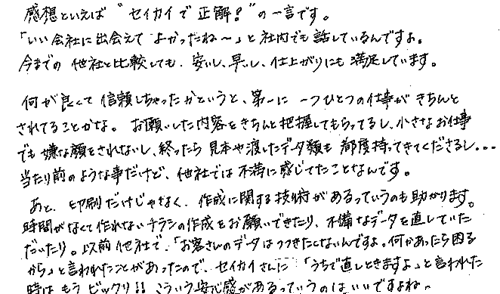 感想といえば "セイカイで正解!" の一言です。
「いい会社に出会えて よかったね〜」と社内でも話しているんですよ。
今までの 他社と比較しても、安いし、早いし、仕上がりにも 満足しています。
何が良くて 信頼しちゃったかというと、第一に 一つひとつの仕事が きちんと
されてることかな。 お願いした内容をきちんと把握してもらってるし、小さなお仕事
でも 嫌な顔をされないし、終ったら 見本や渡したデータ類も 都度持ってきてくださるし...
当たり前のような事だけど、他社では 不満に感じてたことなんです。
あと、印刷だけじゃなく、作成に関する技術があるっていうのも助かります。
時間がなくて作れないチラシの作成をお願いできたり、不備なデータを直していた
だいたり。以前 他社で、「お客さんのデータはつつきたくないんですよ。何かあったら困る
から」と言われたことがあったので、セイカイさんに「うちで直しときますよ」と言われた
時は もう ビックリ!! こういう安心感があるっていうのは いいですよね〜